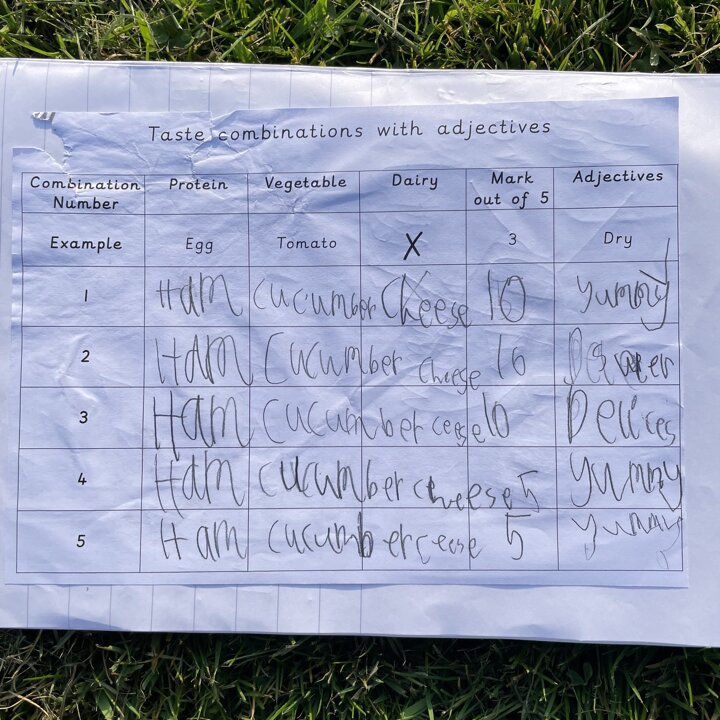 Taste combinations with adjectives
Combination Number Protein Vegetable Dairy Mark out of 5 Adjectives
Example Egg Tomato X 3 Dry
1 Ham cucumber Cheese 10 yummy
2 HAM Cucumber cheese 10
3 Ham cucumber ceese 10 Delices
4 Ham cucumber cheese 5 yummy
5 Ham cucumber ceese 5 yummy